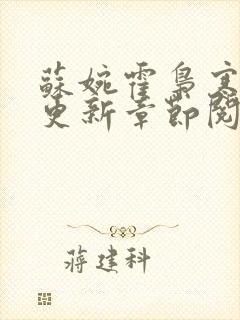 蘇婉霍梟寒
更新章節閱
蔣建科